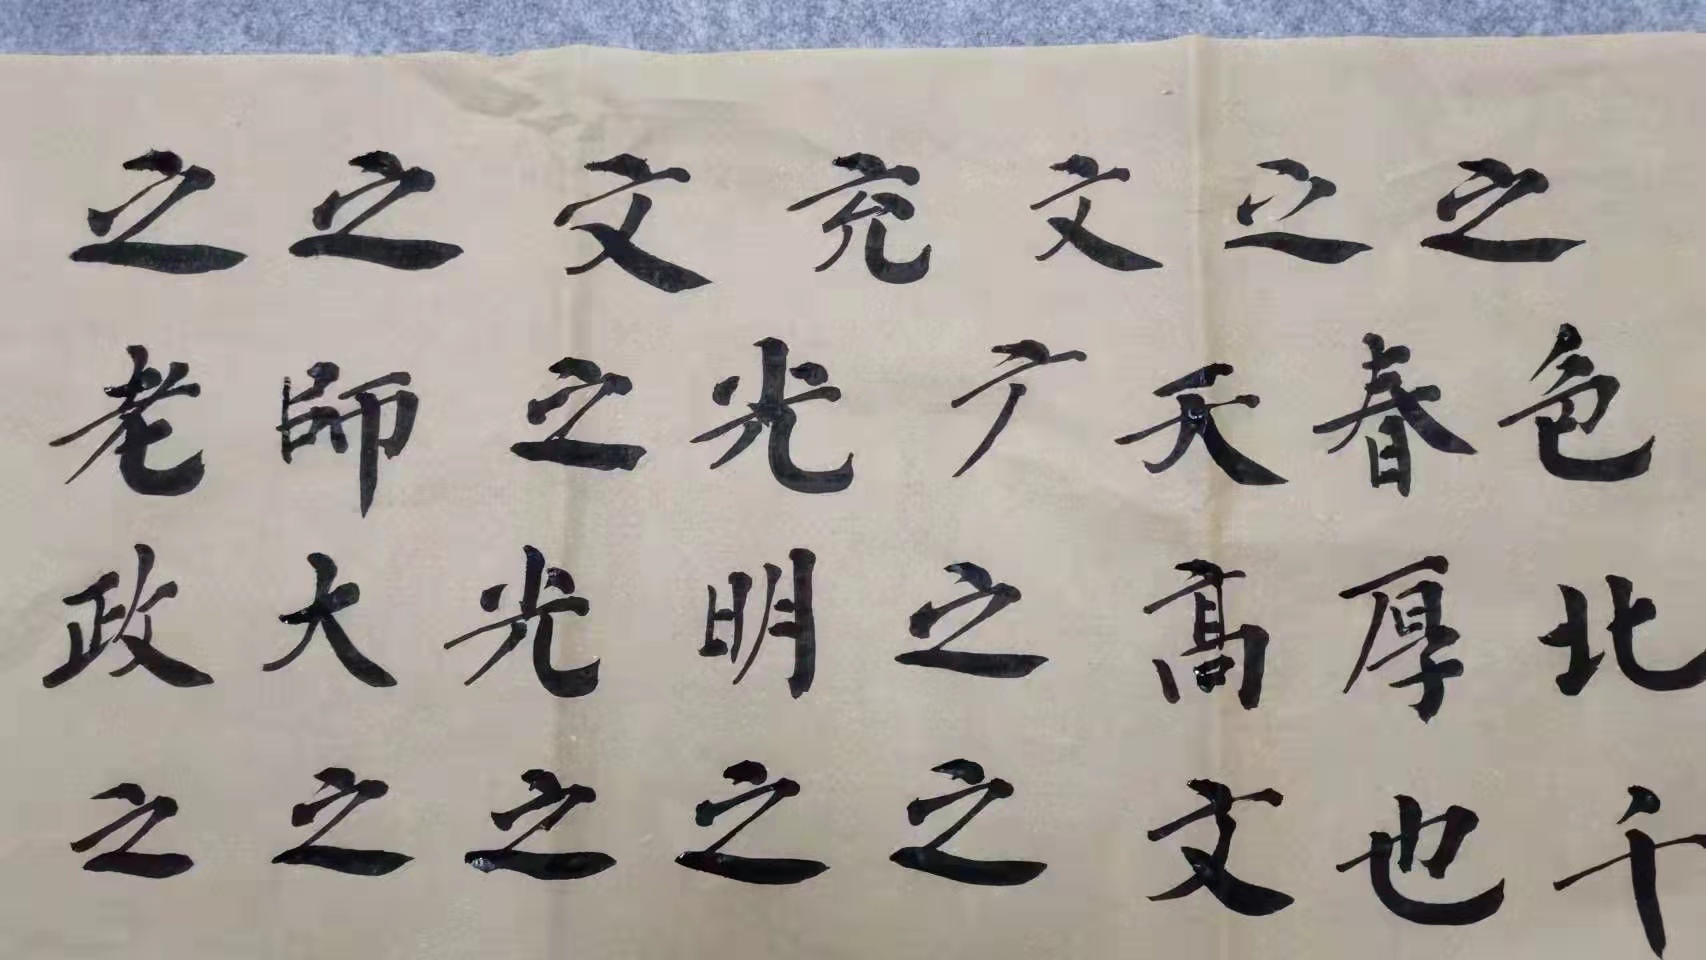 之之文充文之之
老師之光广天春色
政大光明之高厚北
之之之之之文也千